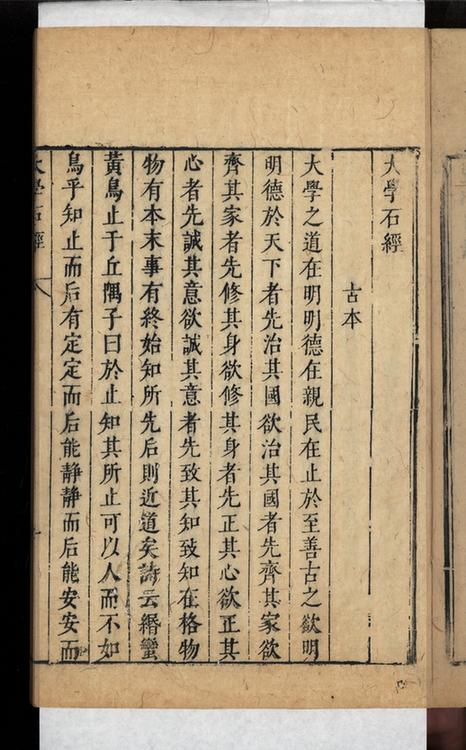 大學石經
古本
大學之道在明明德在親民在止於至善古之欲明
明德於天下者先治其國欲治其國者先齊其家欲
齊其家者先修其身欲修其身者先正其心欲正其
心者先誠其意欲誠其意者先致其知致知在格物
物有本末事有終始知所先后則近道矣詩云緡蠻
黃鳥止于丘隅子曰於止知其所止可以人而不如
鳥乎知止而后有定定而后能靜靜而后能安安而
大學石經